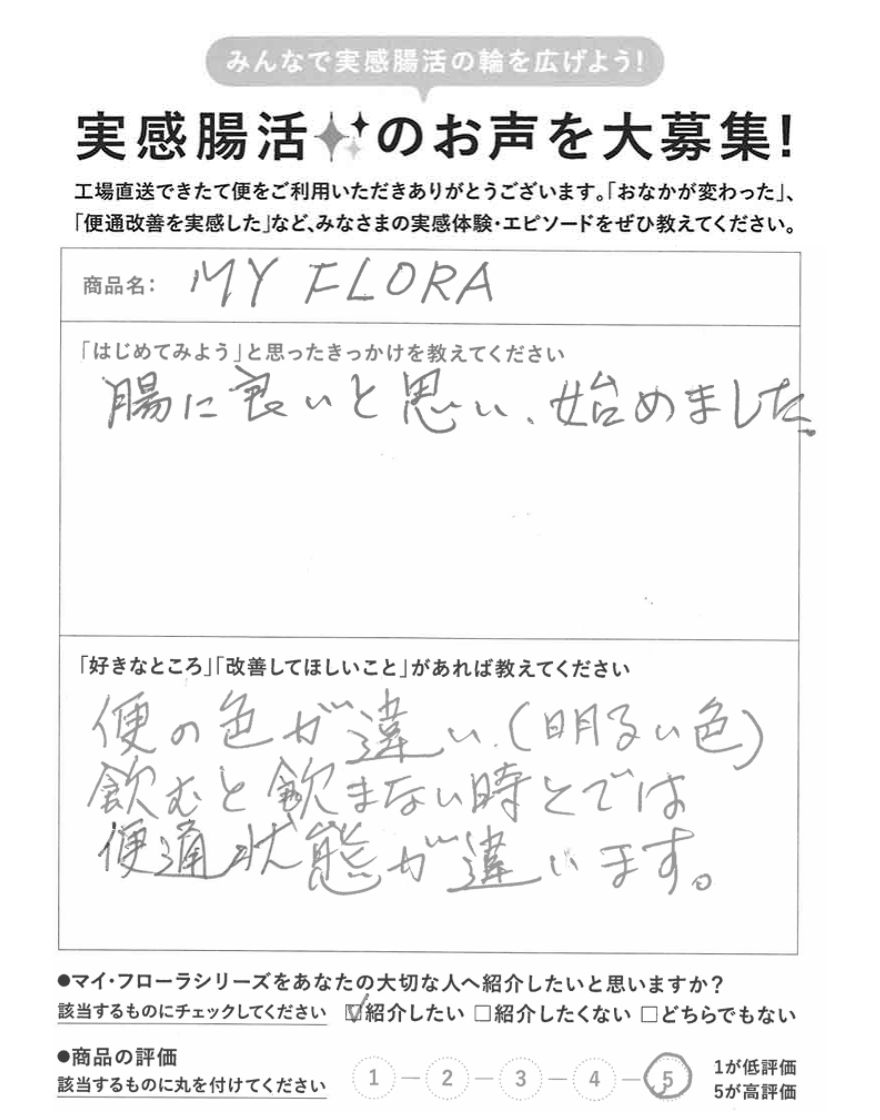 みんなで実感腸活の輪を広げよう!
実感腸活のお声を大募集!
工場直送できたて便をご利用いただきありがとうございます。「おなかが変わった」、
「便通改善を実感した」など、みなさまの実感体験・エピソードをぜひ教えてください。
商品名: MY FLORA
「はじめてみよう」と思ったきっかけを教えてください
腸に良いと思い、始めました。
「好きなところ」「改善してほしいこと」があれば教えてください
便の色が違い、(明るい色)
飲むと飲まない時とでは
便通状態が違います。
●マイ・フローラシリーズをあなたの大切な人へ紹介したいと思いますか?
該当するものにチェックしてください ☑紹介したい □紹介したくない □どちらでもない
●商品の評価
該当するものに丸を付けてください 1 — 2 — 3 — 4 — 5
1が低評価
5が高評価